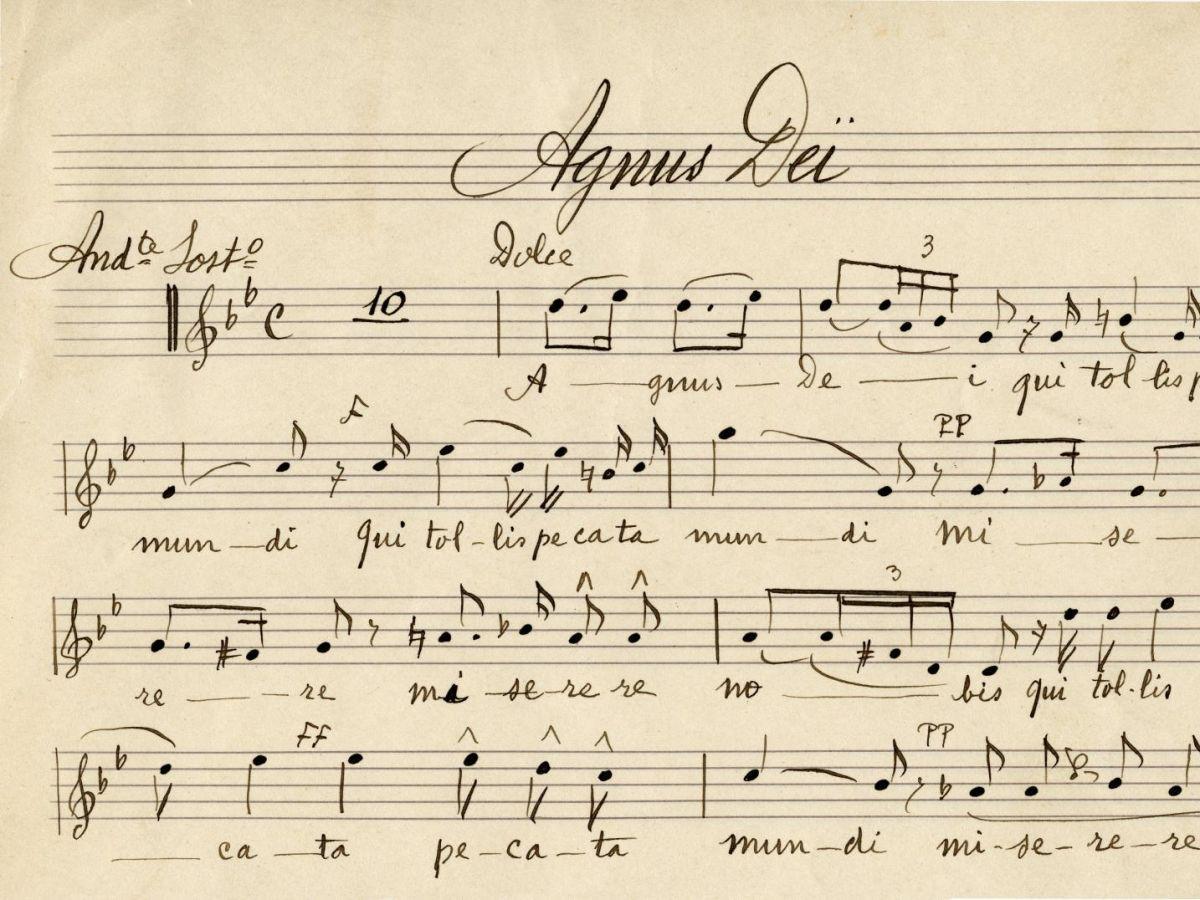 Agnus Deï
Andte Sosto Dolce
10 3
A — gnus — De — i qui tol-lis p
F PP
mun — di qui tol-lis pe ca ta mun — di mi — se —
3
re — re mi — se-re re no — bis qui tol-lis
FF PP
— ca — ta pe-ca-ta mun-di mi-se-re-re